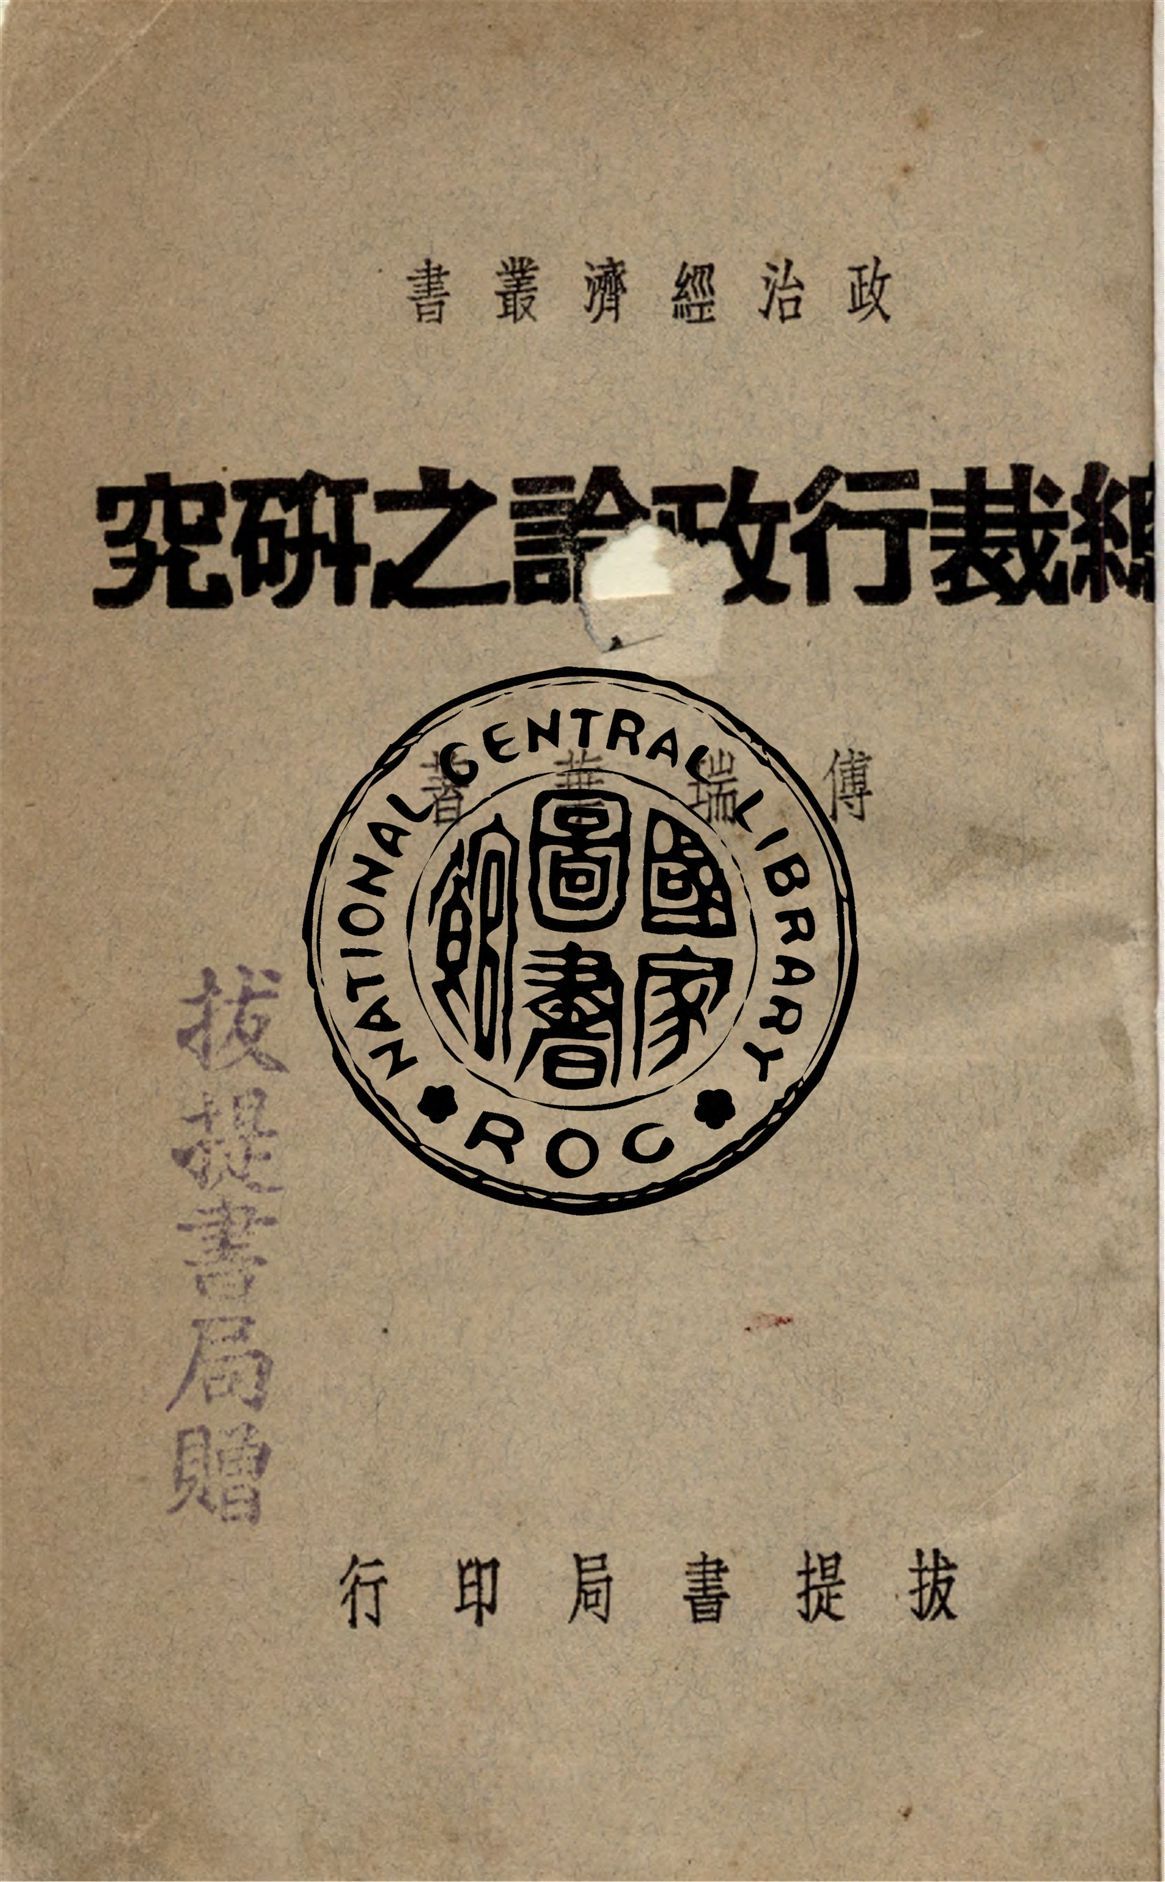 政治經濟叢書
總裁行政論之研究
傅瑞華著
NATIONAL CENTRAL LIBRARY
國家圖書館
ROC
拔提書局贈
拔提書局印行